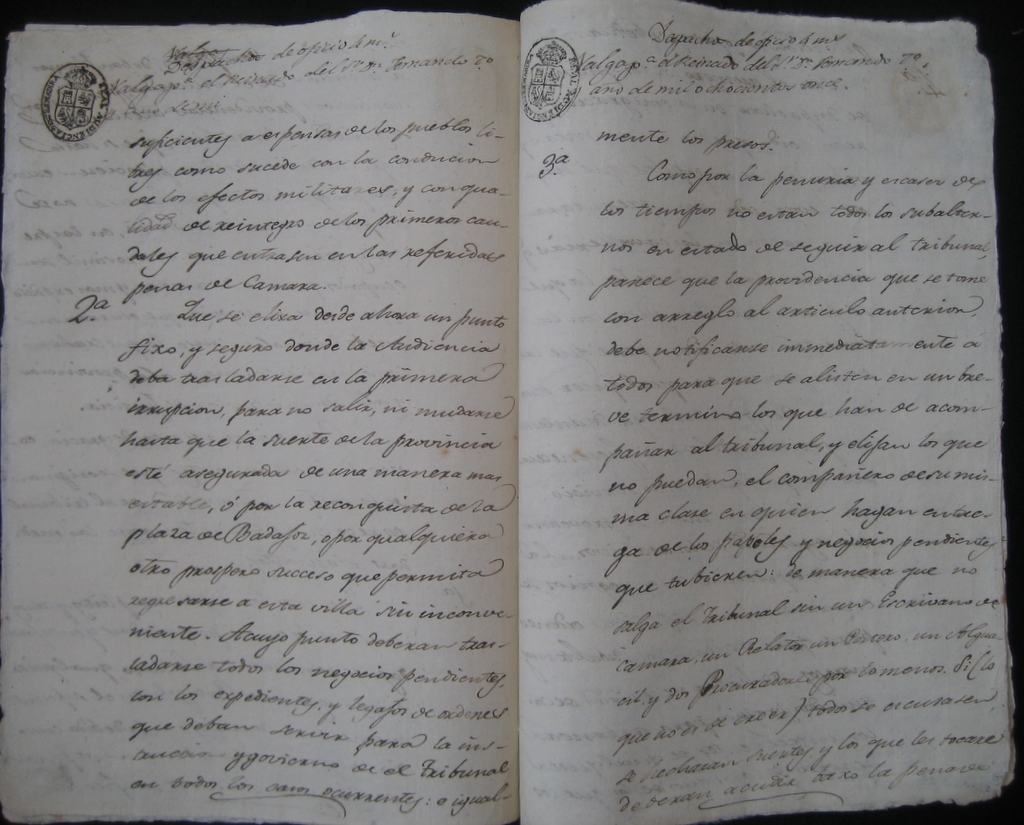 Despacho de oficio 4 mrs.
Valga pa. el Reinado del Sr. Dn. Fernando 7o.
suficientes a espensas de los pueblos li-
bres como sucede con la conducion
de los efectos militares, y con qua-
lidad de reintegro de los primeros cau-
dales que entrasen en las referidas
penas de Camara.
2.a Que se elixa desde ahora un punto
fixo, y seguro donde la Audiencia
deba trasladarse en la primera
irrupcion, para no salir, ni mudarse
hasta que la suerte de la provincia
esté asegurada de una manera mas
estable, ó por la reconquista de la
plaza de Badajoz, o por qualquiera
otro prospero succeso que permita
regresarse a esta villa sin inconve-
niente. A cuyo punto deberan tras-
ladarse todos los negocios pendientes,
con los expedientes, y legajos de ordenes
que deban servir para la ins-
truccion y govierno de el Tribunal
en todos los casos ocurrentes: e igual-
REAL AUDIENCIA DE EXTREMADURA
Despacho de oficio 4 mrs
Valga pa. el Reinado del Sr. Dn. Fernando 7o.
ano de mil ochocientos once.
mente los presos.
3.a Como por la penuria y escasez de
los tiempos no estan todos los subalter-
nos en estado de seguir al tribunal,
parece que la providencia que se tome
con arreglo al articulo anterior,
debe notificarse immediatamente á
todos para que se alisten en un bre-
ve termino los que han de acom-
pañar al tribunal, y elijan los que
no puedan, el compañero de su mis-
ma clase en quien hagan entre-
ga de los papeles y negocios pendientes
que tubieren: de manera que no
salga el Tribunal sin un Escrivano de
camara, un Relator, un Portero, un Algua-
cil y dos Procuradores por lo menos. Si (lo
que no es de creer) todos se escusasen
se hecharan suertes y los que les tocare
deberan acudir baxo la pena de